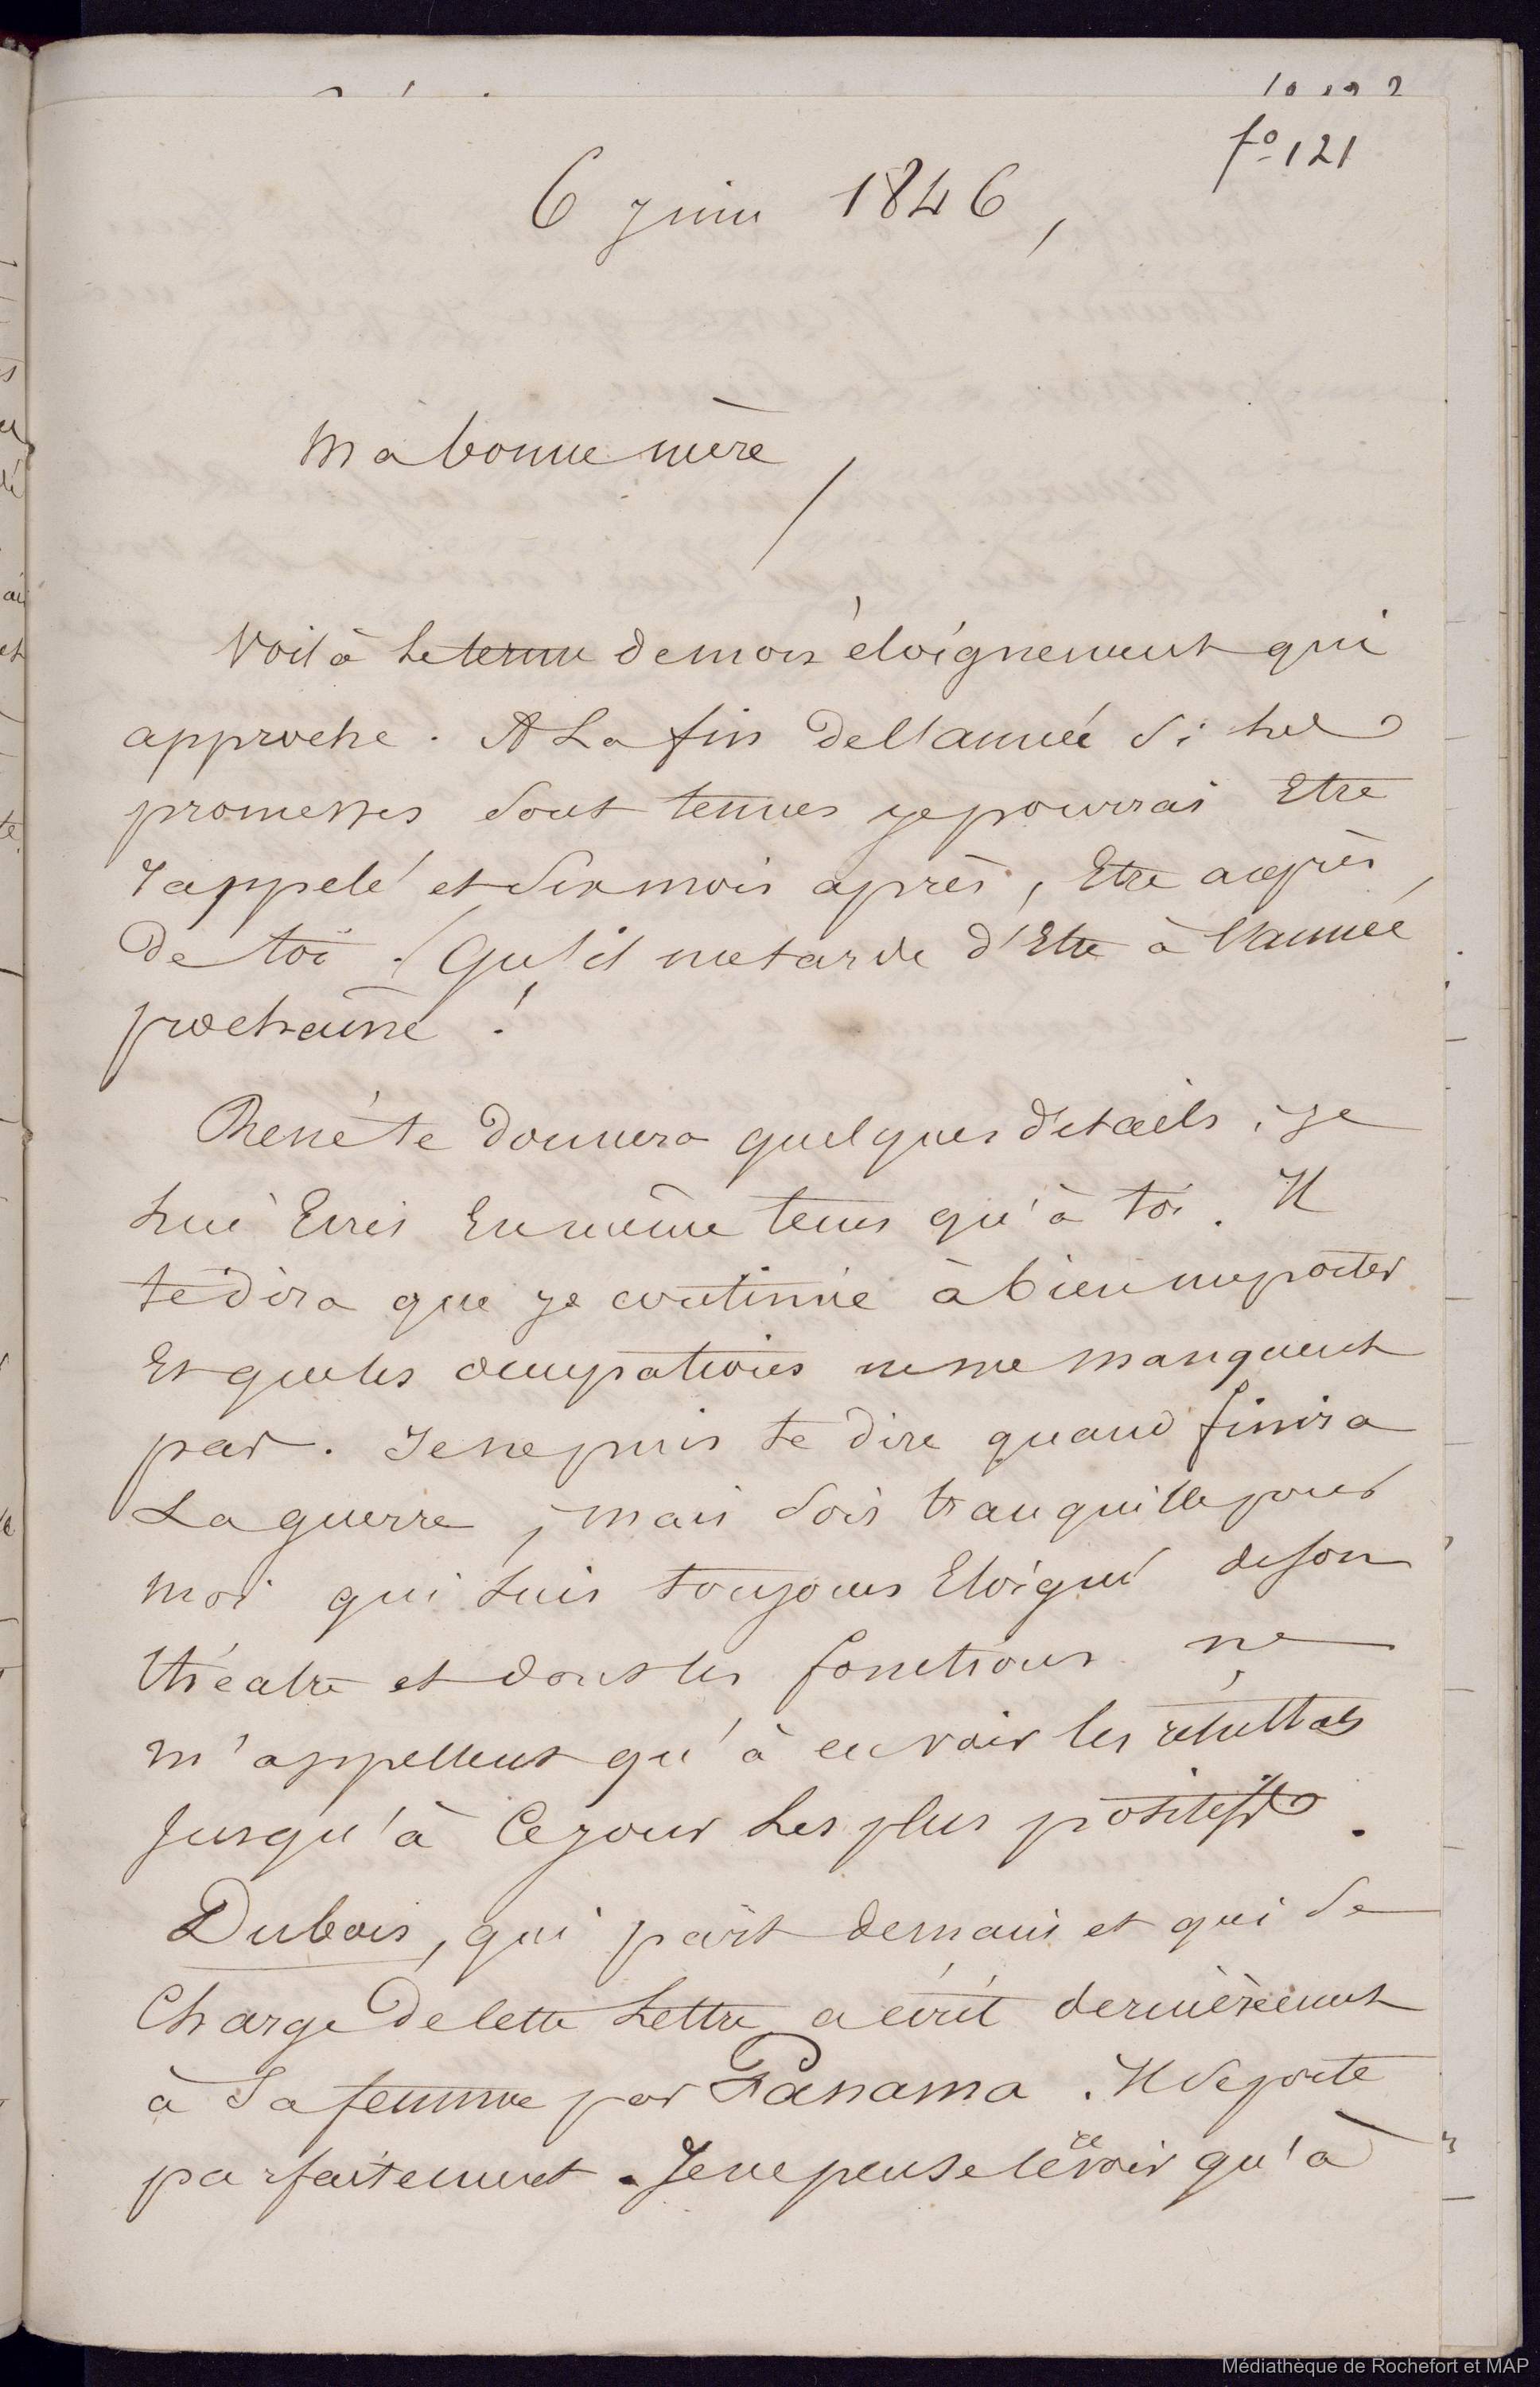 fº 121
6 juin 1846,
Ma bonne mère
Voilà le terme de mon éloignement qui
approche. A La fin de l'année si les
promesses sont tenues je pourrai Etre
rappelé et six mois après, Etre auprès
de toi. Qu'il me tarde d'Etre à l'année
prochaine !
René te donnera quelques détails, je
Lui Ecris En même tems qu'à toi. Il
te dira que je continue à bien me porter
Et que les occupations ne me manquent
pas. Je ne puis te dire quand finira
La guerre, mais sois tranquille pour
moi qui suis toujours Eloigné de son
théatre et dont les fonctions ne
m'appellent qu'à en voir les résultats
jusqu'à Ce jour Les plus positifs.
Dubois, qui part demain et qui se
Charge de cette Lettre a écrit dernièrement
à Sa femme par Panama. Il se porte
parfaitement. Je ne pense le revoir qu'à
Médiathèque de Rochefort et MAP